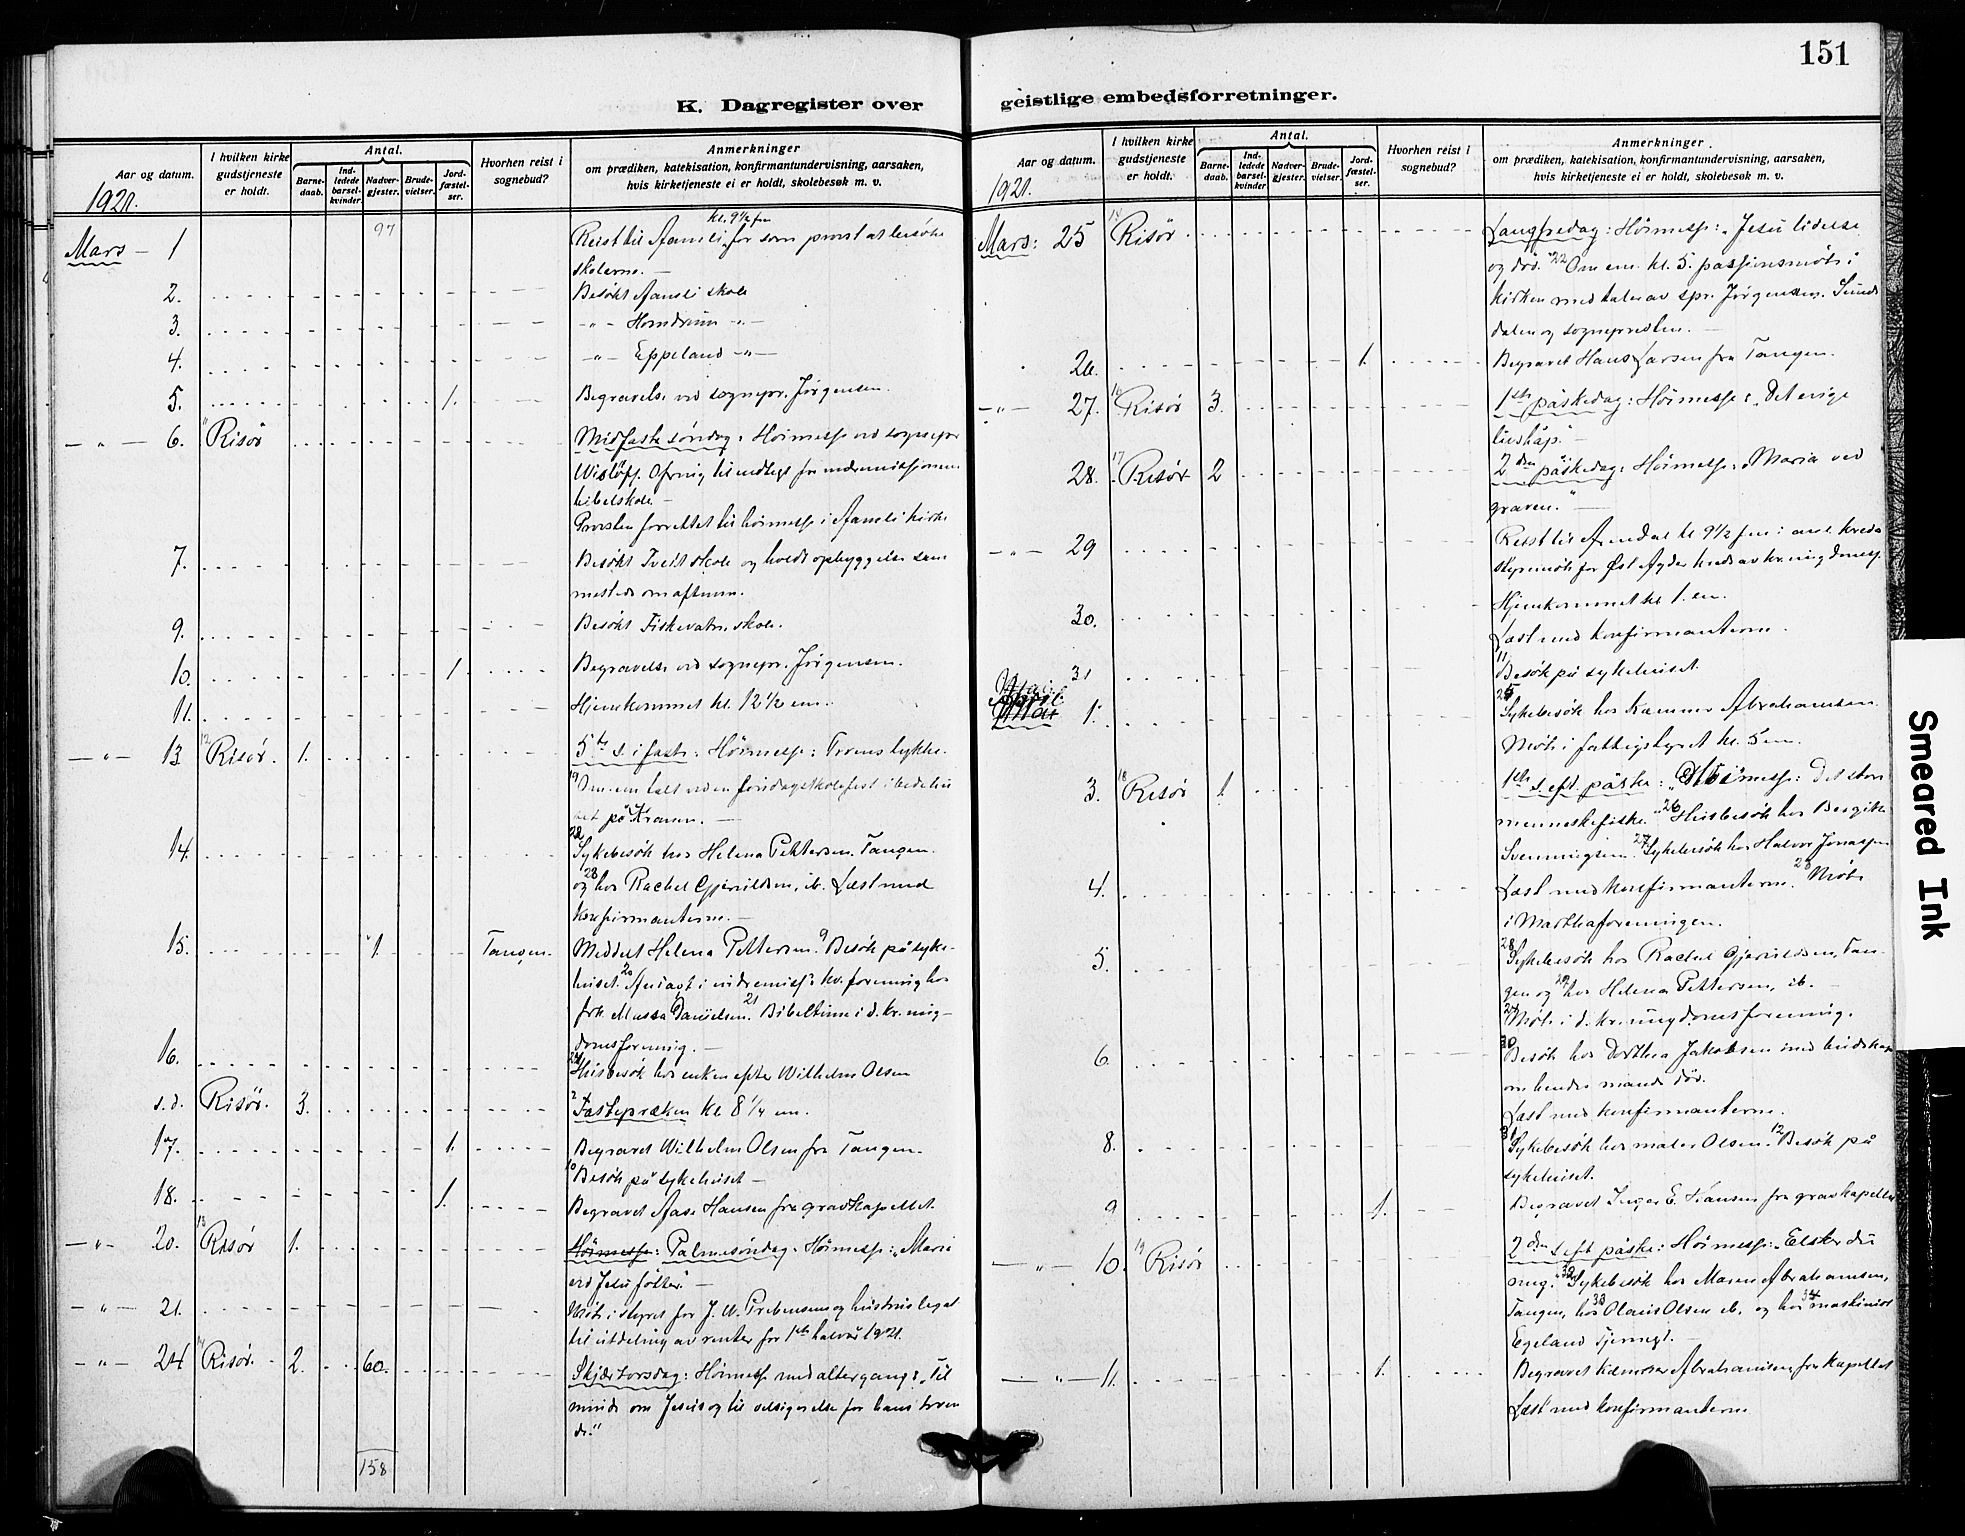 151
K. Dagregister over geistlige embedsforretninger.
Aar og datum.
I hvilken kirke gudstjeneste er holdt.
Antal.
Barnedaab.
Indledede barselkvinder.
Nadvergjester.
Brudevielser.
Jordfæstelser.
Hvorhen reist i sognebud?
Anmerkninger
om prædiken, katekisation, konfirmantundervisning, aarsaken,
hvis kirketjeneste ei er holdt, skolebesøk m. v.
1921.
97
Mars — 1 Reist til Aamli kl. 9½ fm for som prost at besøke
skolerne. —
2. Besøkt Aamli skole
3. —"— Horndrum —"—
4. —"— Eppeland —"—
5. 1. Begravelse ved sognepr. Jørgensen.
—"— 6. Risør 11 Midfaste søndag: Høimesse ved sognepr
Wisløff. Ofring til indtegt for indremissjonens
bibelskole —
Provsten forrettet til høimesse i Aamli kirke
7. Besøkt Tveit skole og holdt opbyggelse sam
mesteds om aftenen.
9. Besøkt Fiskevatn skole.
10. 1 Begravelse ved sognepr. Jørgensen.
11. Hjemkommet kl. 12½ em.
—"— 13 12 Risør. 1. 5te s. i faste: Høimesse: Troens lykke.
19 Om em talt ved en søndagsskolefest i bedehu
set på Kranen. —
14. 22 Sykebesøk hos Helena Pettersen. Tangen.
og 23 hos Rachel Gjeruldsen, ib. Læst med
konfirmanterne. —
15. 1. Tangen. Meddelt Helena Pettersen. 9 Besøk på syke-
huset. 20 Andagt i indremiss. kv. forening hos
frk. Massa Danielsen. 21 Bibeltime i d. kr. ung-
domsforening. —
16. 24 Husbesøk hos enken efter Wilhelm Olsen
s.d. Risør. 3. 2 Fastepræken kl. 8¼ em.
17. 1. Begravet Wilhelm Olsen fra Tangen.
10 Besøk på sykehuset —
18. 1. Begravet Aase Hansen fra gravkapellet.
—"— 20. 13 Risør 1. Høimesse: Palmesøndag. Høimesse: „Maria
ved Jesu føtter." —
—"— 21. Møte i styret for J. W. Prebensens og hustrus legat
til utdeling av renter for 1ste halvår 1921.
—"— 24 14 Risør. 2. 60. Skjærtorsdag: Høimesse med altergang: „Til
minde om Jesus og til velsignelse for hans troen
de."
158
Aar og datum.
I hvilken kirke gudstjeneste er holdt.
Antal.
Barnedaab.
Indledede barselkvinder
Nadvergjester.
Brudevielser.
Jordfæstelser.
Hvorhen reist i sognebud?
Anmerkninger.
om prædiken, katekisation, konfirmantundervisning, aarsaken,
hvis kirketjeneste ei er holdt, skolebesøk m. v.
1921.
Mars: 25 Risør Langfredag: Høimesse: „Jesu lidelse
og død." 22 Om em. kl. 5. passjonsmøte i
kirken med taler av spr. Jørgensen. Sunds
dalen og sognepresten. —
26. 1. Begravet Hans Larsen fra Tangen.
—"— 27. 16 Risør 3. 1ste påskedag: Høimesse: „Det evige
livshåp." —
28. 17 Risør 2 2den påskedag: Høimesse: „Maria ved
graven." —
—"— 29 Reist til Arendal kl 9½ fm:
styremøte for Øst Agder kreds av kr. ungdomsf.
Hjemkommet kl 1. em.
30. Læst med konfirmanterne.
31 11 Besøk på sykehuset.
April 1. 25 Sykebesøk hos Kæmner Abrahamsen.
Møte i fattigstyret kl. 5 em.
3. 18 Risør 1 1ste s. eft. påske: Høimesse: Det store
menneskefiske." 26 Husbesøk hos Bergitte
Svenningsen. 27 Sykebesøk hos Halvor Jonassen
4. Læst med konfirmanterne. 23 Møte
i Marthaforeningen.
5. 28 Sykebesøk hos Rachel Gjeruldsen, Tan-
gen og 29 hos Helena Pettersen, ib. —
24 Møte i d. kr. ungdomsforening.
6. 30 Besøk hos Dorthea Jakobsen med budskap
om hendes mands død.
Læst med konfirmanterne.
8. 31 Sykebesøk hos maler Olsen. 12 Besøk på
sykehuset.
9 1. Begravet Inger E. Hansen fra gravkapellet
—"— 10. 19 Risør 2den s. eft påske: Høimesse: „Elsker du
mig." 32 Sykebesøk hos Maren Abrahamsen,
Tangen, hos 33 Olaus Olsen ib. og hos 34 maskinist
Egeland Tjerngt. —
—"— 11. 1. Begravet kæmner Abrahamsen fra kapellet
Læst med konfirmanterne
Smeared Ink